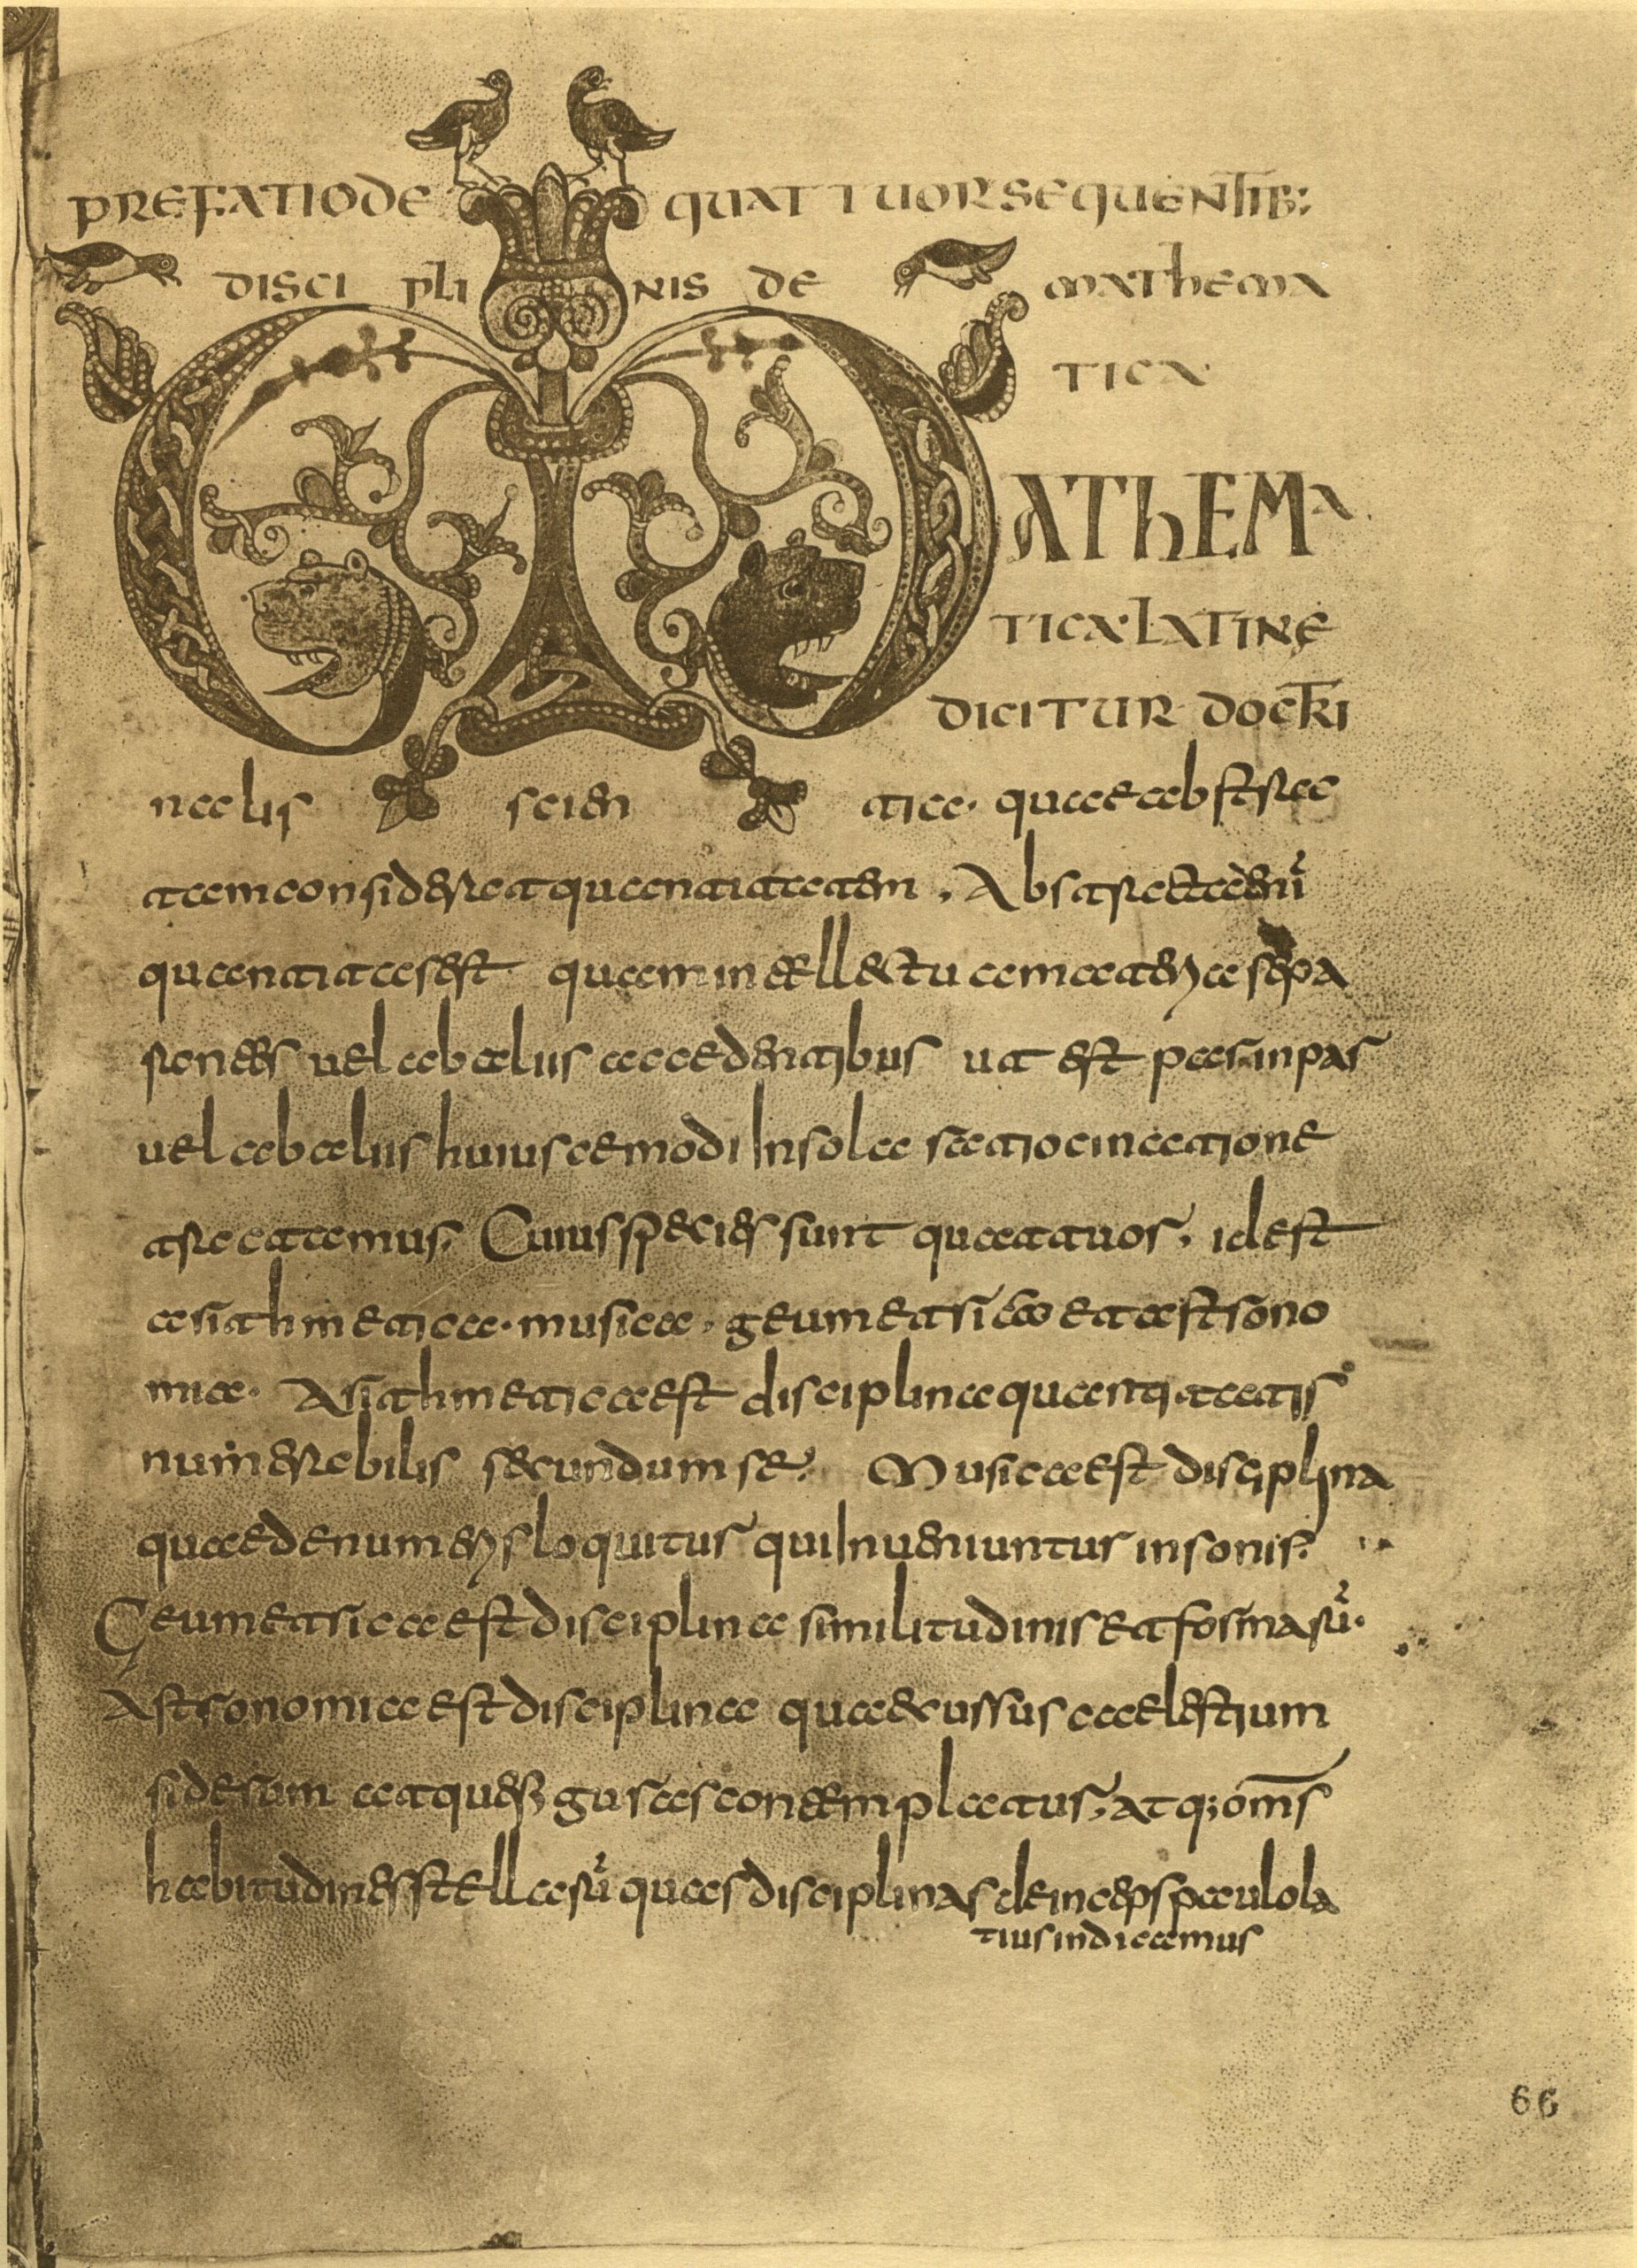 PREFATIO DE QUATTUOR SEQUENTIB:
DISCIPLINIS DE MATHEMA
TICA
MATHEMA
TICA LATINE
DICITUR DOCTRI
nalis scientia. quae abstrac
tam considerat quantitatem. Abstracta enī
quantitas est quam intellectu a materia sepa
rantes vel ab aliis accidentibus ut est par inpar
vel ab aliis huiuscemodi In sola ratiocinatione
tractamus. Cuius species sunt quattuor. idest
arithmetica. musica. geumetrica et astrono
mia. Arithmetica est disciplina quantitatis
numerabilis secundum se. Musica est disciplina
quae de numeris loquitur qui Inveniuntur in sonis.
Geumetrica est disciplina similitudinis et formarū.
Astronomia est disciplina quae cursus caelestium
siderum atque figuras contemplatur. atq; om̄s
habitudines stellarū quas disciplinas deinceps paulo la
tius indicamus
66